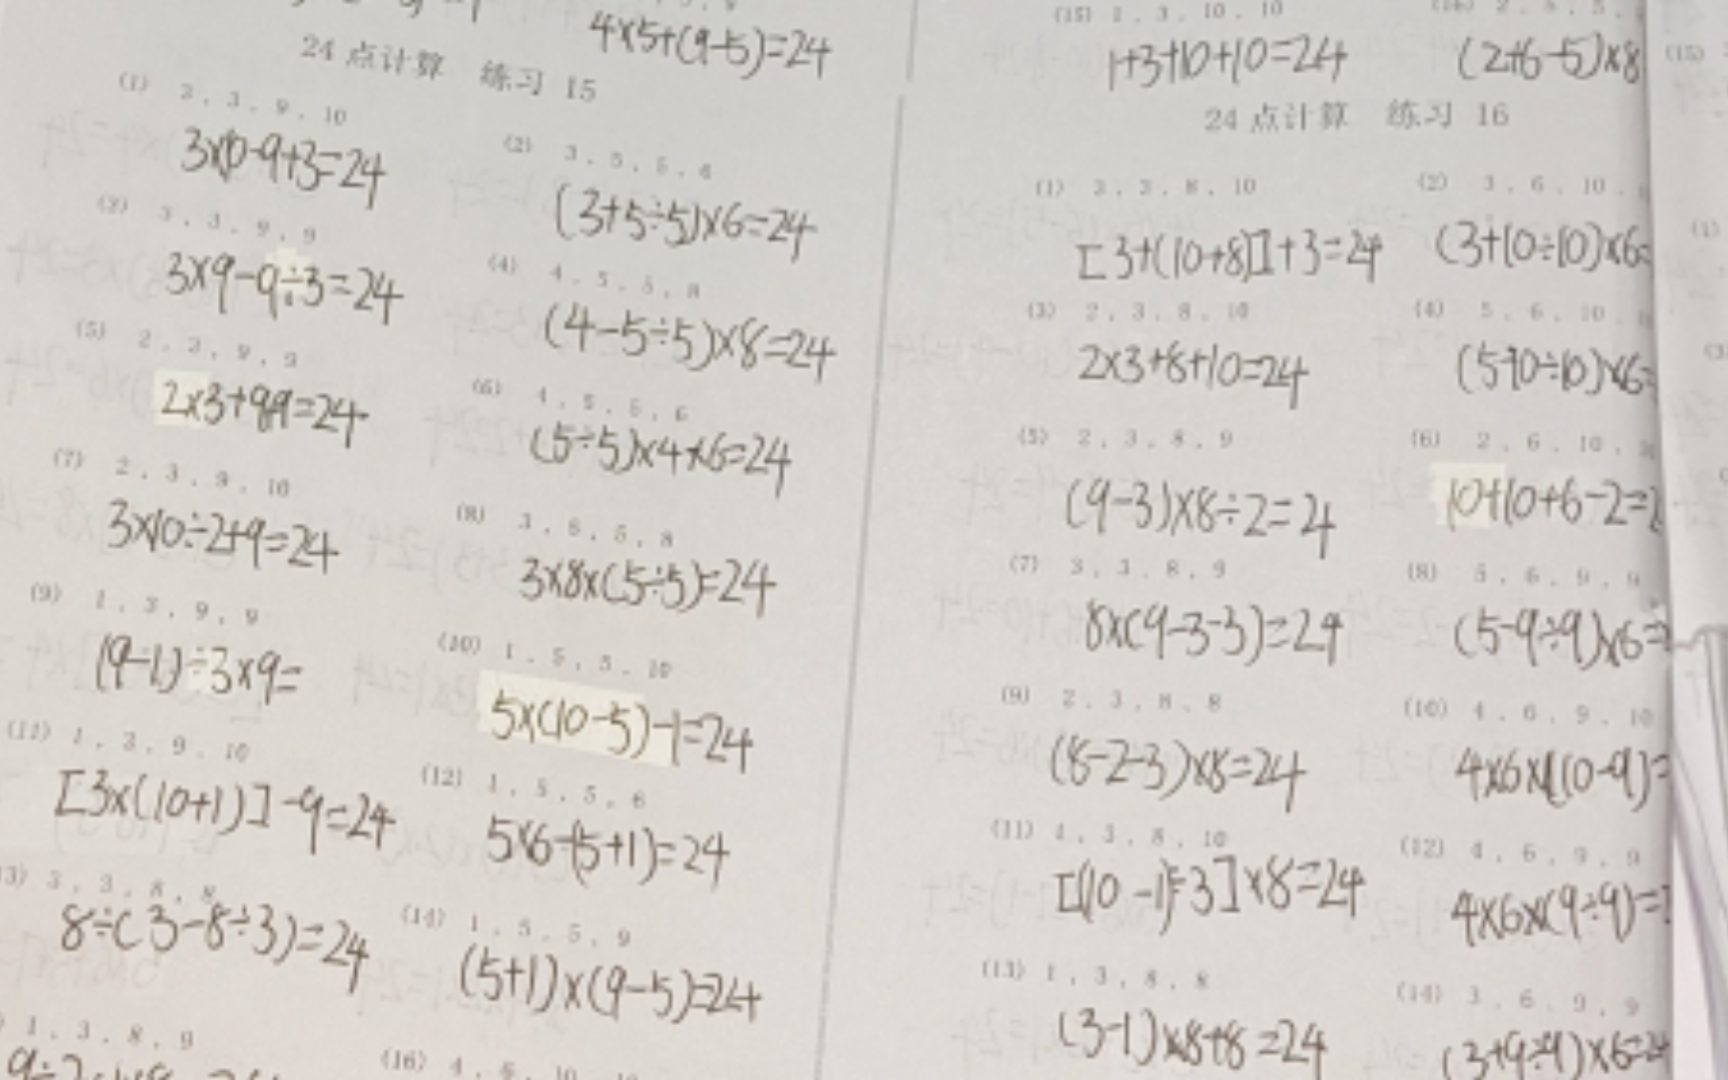 4×5+(9-5)=24
24点计算 练习 15
(1) 3, 3, 9, 10
3×10-9+3=24
(2) 3, 5, 5, 6
(3+5÷5)×6=24
3, 3, 9, 9
3×9-9÷3=24
(4) 4, 5, 5, 8
(4-5÷5)×8=24
(5) 2, 3, 9, 9
2×3+9+9=24
(6) 4, 5, 5, 6
(5÷5)×4×6=24
(7) 2, 3, 9, 10
3×10÷2+9=24
(8) 3, 5, 5, 8
3×8×(5÷5)=24
(9) 1, 3, 9, 9
(9-1)÷3×9=
(10) 1, 5, 5, 10
5×(10-5)-1=24
(11) 1, 3, 9, 10
[3×(10+1)]-9=24
(12) 1, 5, 5, 6
5×6-(5+1)=24
3) 3, 3, 8, 8
8÷(3-8÷3)=24
(14) 1, 5, 5, 9
(5+1)×(9-5)=24
) 1, 3, 8, 9
(16) 4,
(15) 1, 3, 10, 10
1+3+10+10=24
(2+6-5)×8
24点计算 练习 16
(1) 3, 3, 8, 10
[3+(10+8)]+3=24
(2) 3, 6, 10,
(3+10÷10)×6=
(3) 2, 3, 8, 10
2×3+8+10=24
(4) 5, 6, 10,
(5-10÷10)×6=
(5) 2, 3, 8, 9
(9-3)×8÷2=24
(6) 2, 6, 10,
10+10+6-2=2
(7) 3, 3, 8, 9
8×(9-3-3)=24
(8) 5, 6, 9, 9
(5-9÷9)×6=
(9) 2, 3, 8, 8
(8-2-3)×8=24
(10) 4, 6, 9, 10
4×6×(10-9)=
(11) 1, 3, 8, 10
[(10-1)÷3]×8=24
(12) 4, 6, 9, 9
4×6×(9÷9)=
(13) 1, 3, 8, 8
(3-1)×8+8=24
(14) 3, 6, 9, 9
(3+9÷9)×6=24
(15)